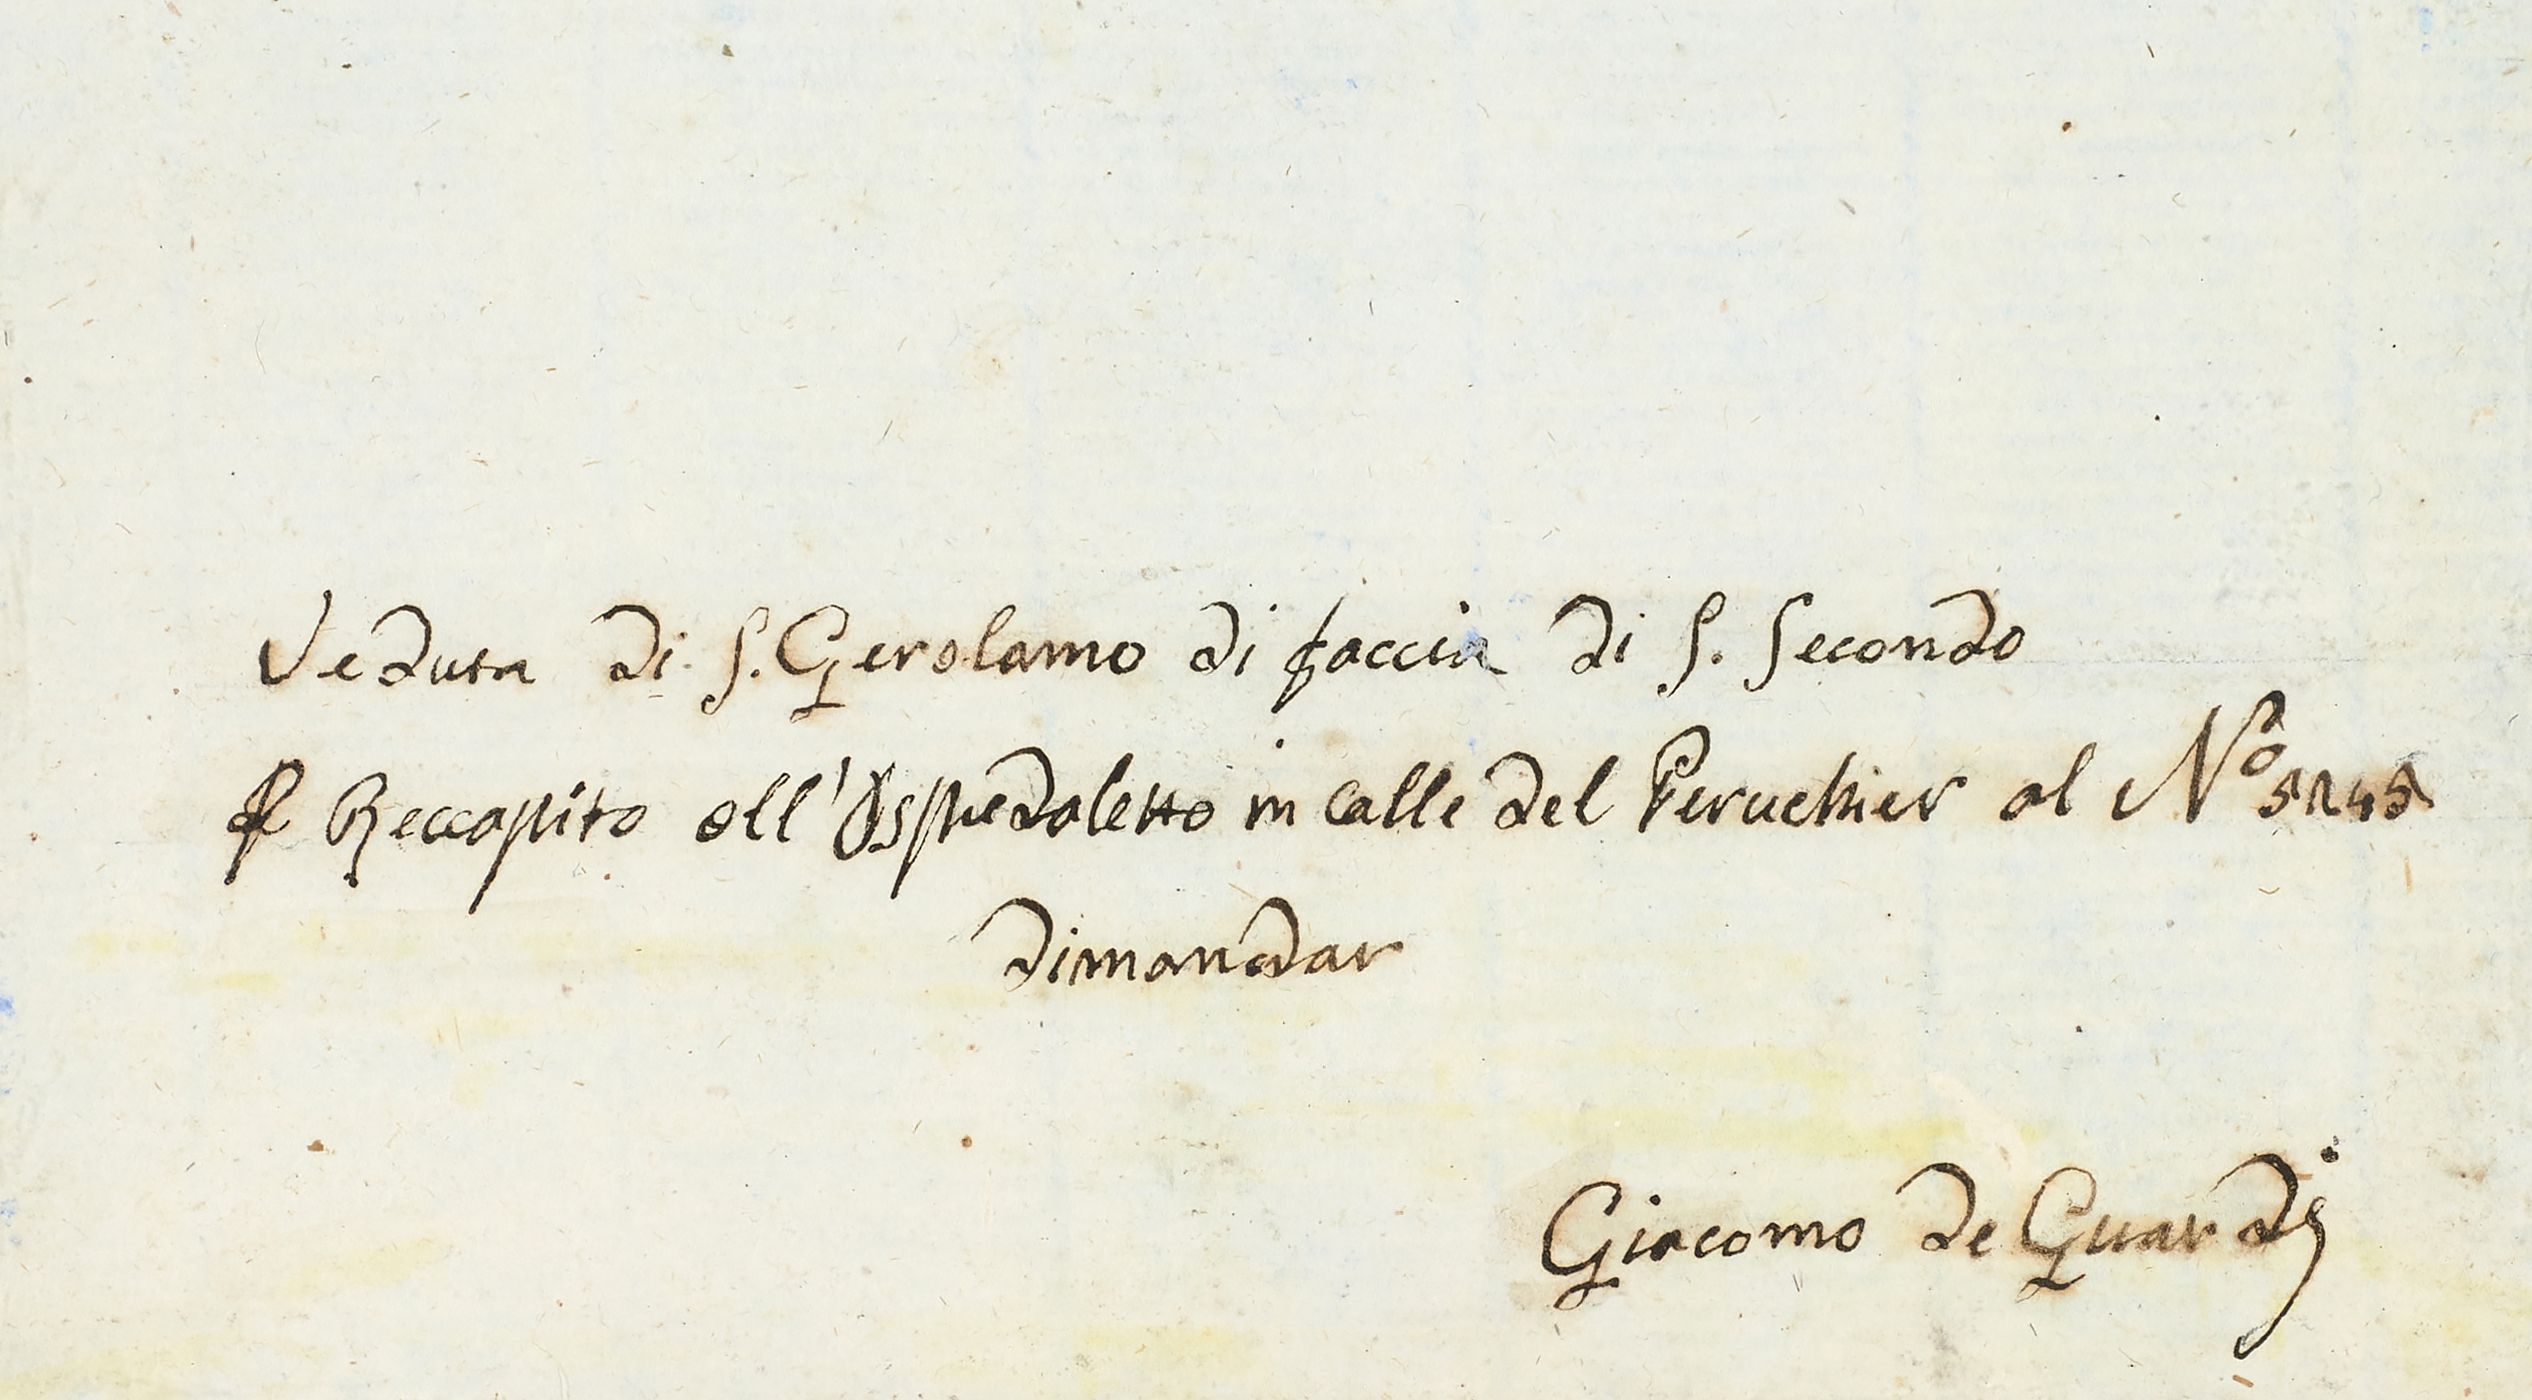 Veduta di S. Gerolamo di faccia di S. Secondo
Reccapito all'Ospedaletto in Calle del Peruchier al Nº 5245
dimandar
Giacomo de Guardi